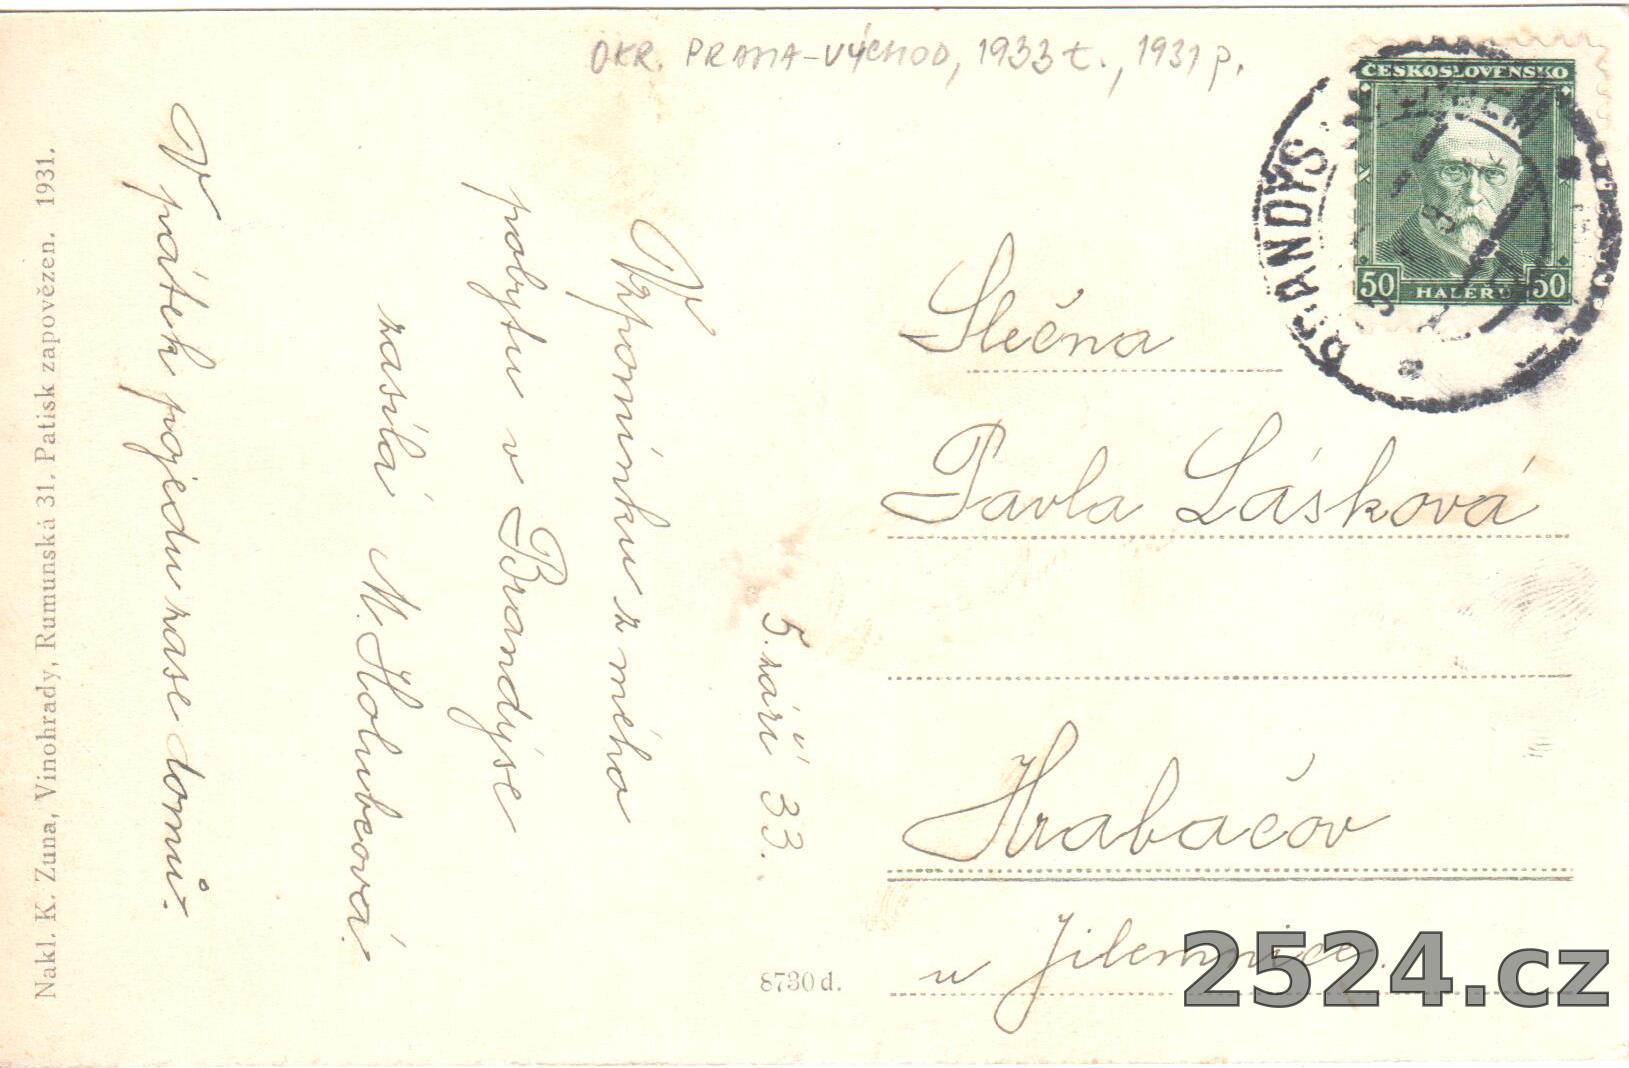 OKR. PRAHA-VÝCHOD, 1933 t., 1931 p.
ČESKOSLOVENSKO
50 HALÉŘŮ 50
BRANDÝS
5. září 33.
Vzpomínku z mého
pobytu v Brandýse
zasílá M. Holubcová.
V pátek pojedu zase domů.
Slečna
Pavla Lásková
Hrabačov
u Jilemnice.
8730 d.
Nakl. K. Zuna, Vinohrady, Rumunská 31. Patisk zapovězen. 1931.
2524.cz